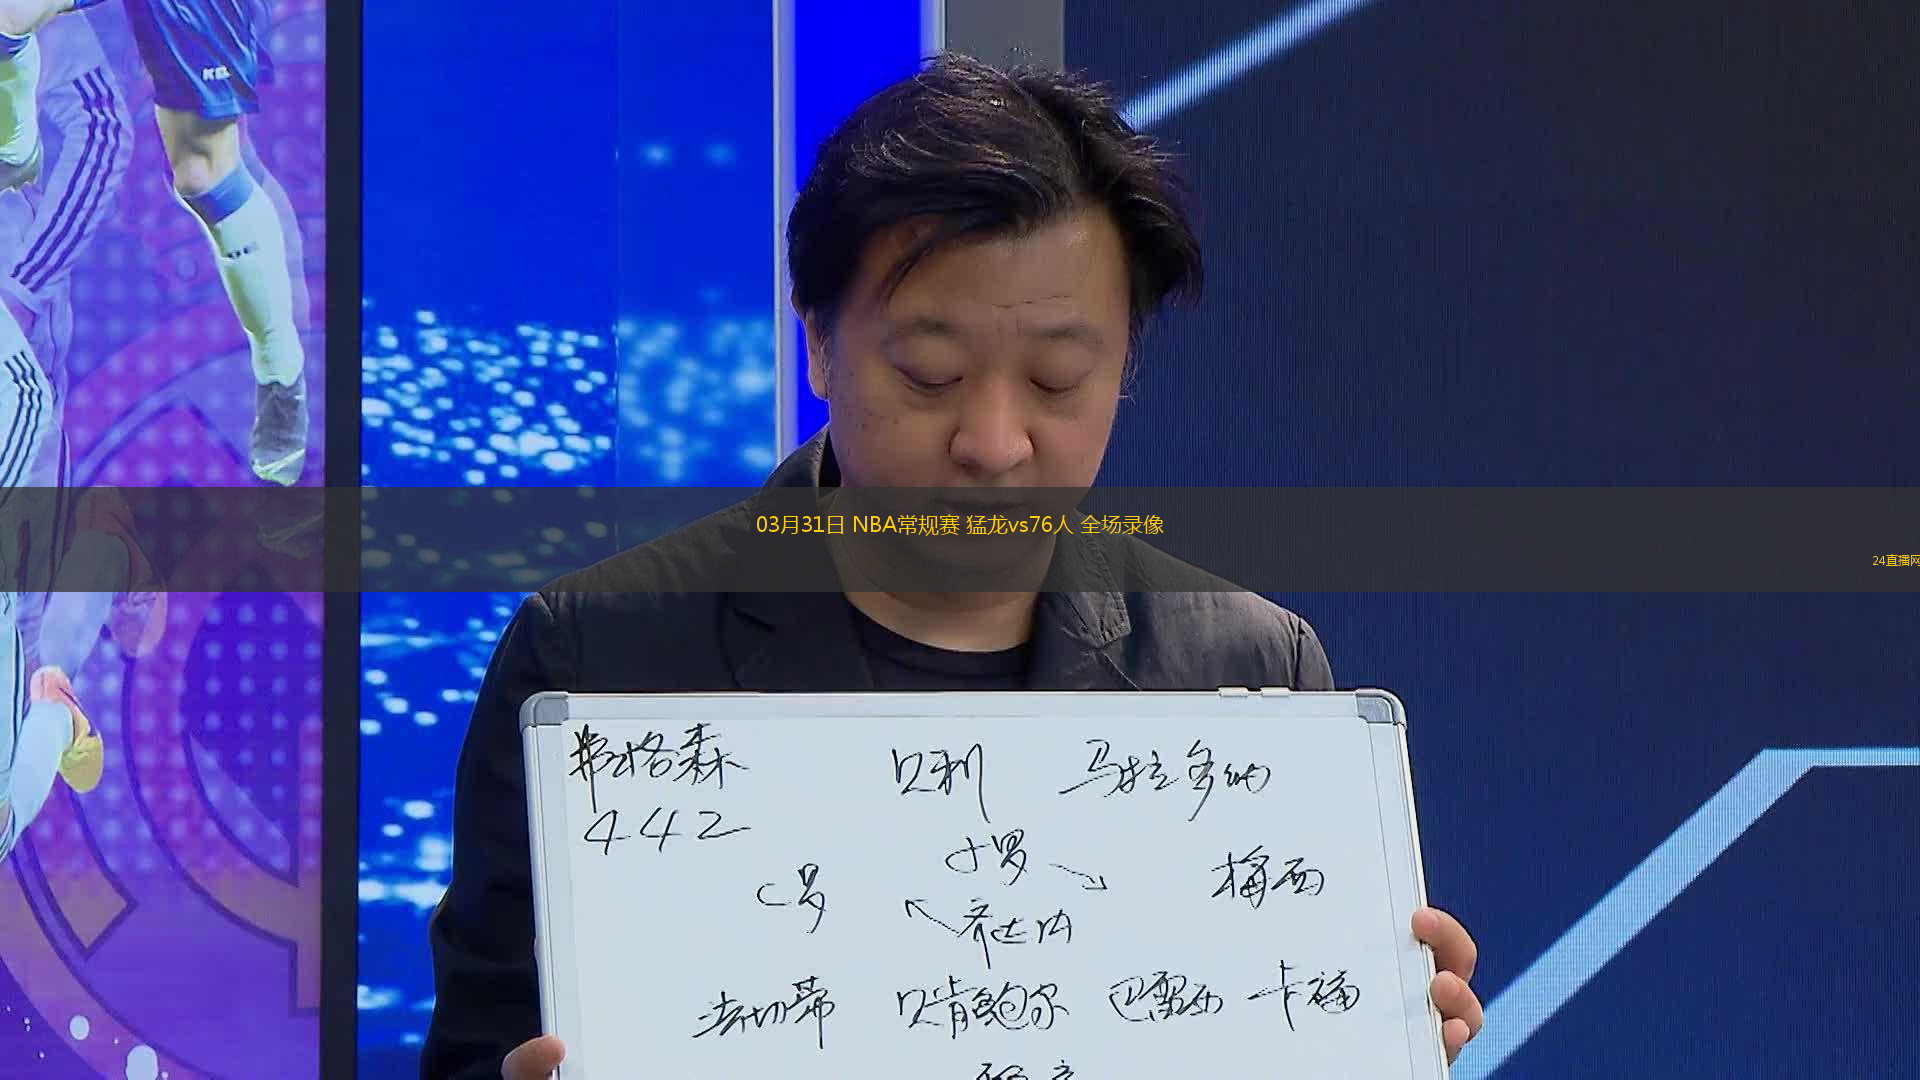 03月31日 NBA常规赛 猛龙vs76人 全场录像
24直播网
弗格森 贝利 马拉多纳
442
小罗
C罗 梅西
齐达内
法切蒂 贝肯鲍尔 巴雷西 卡福